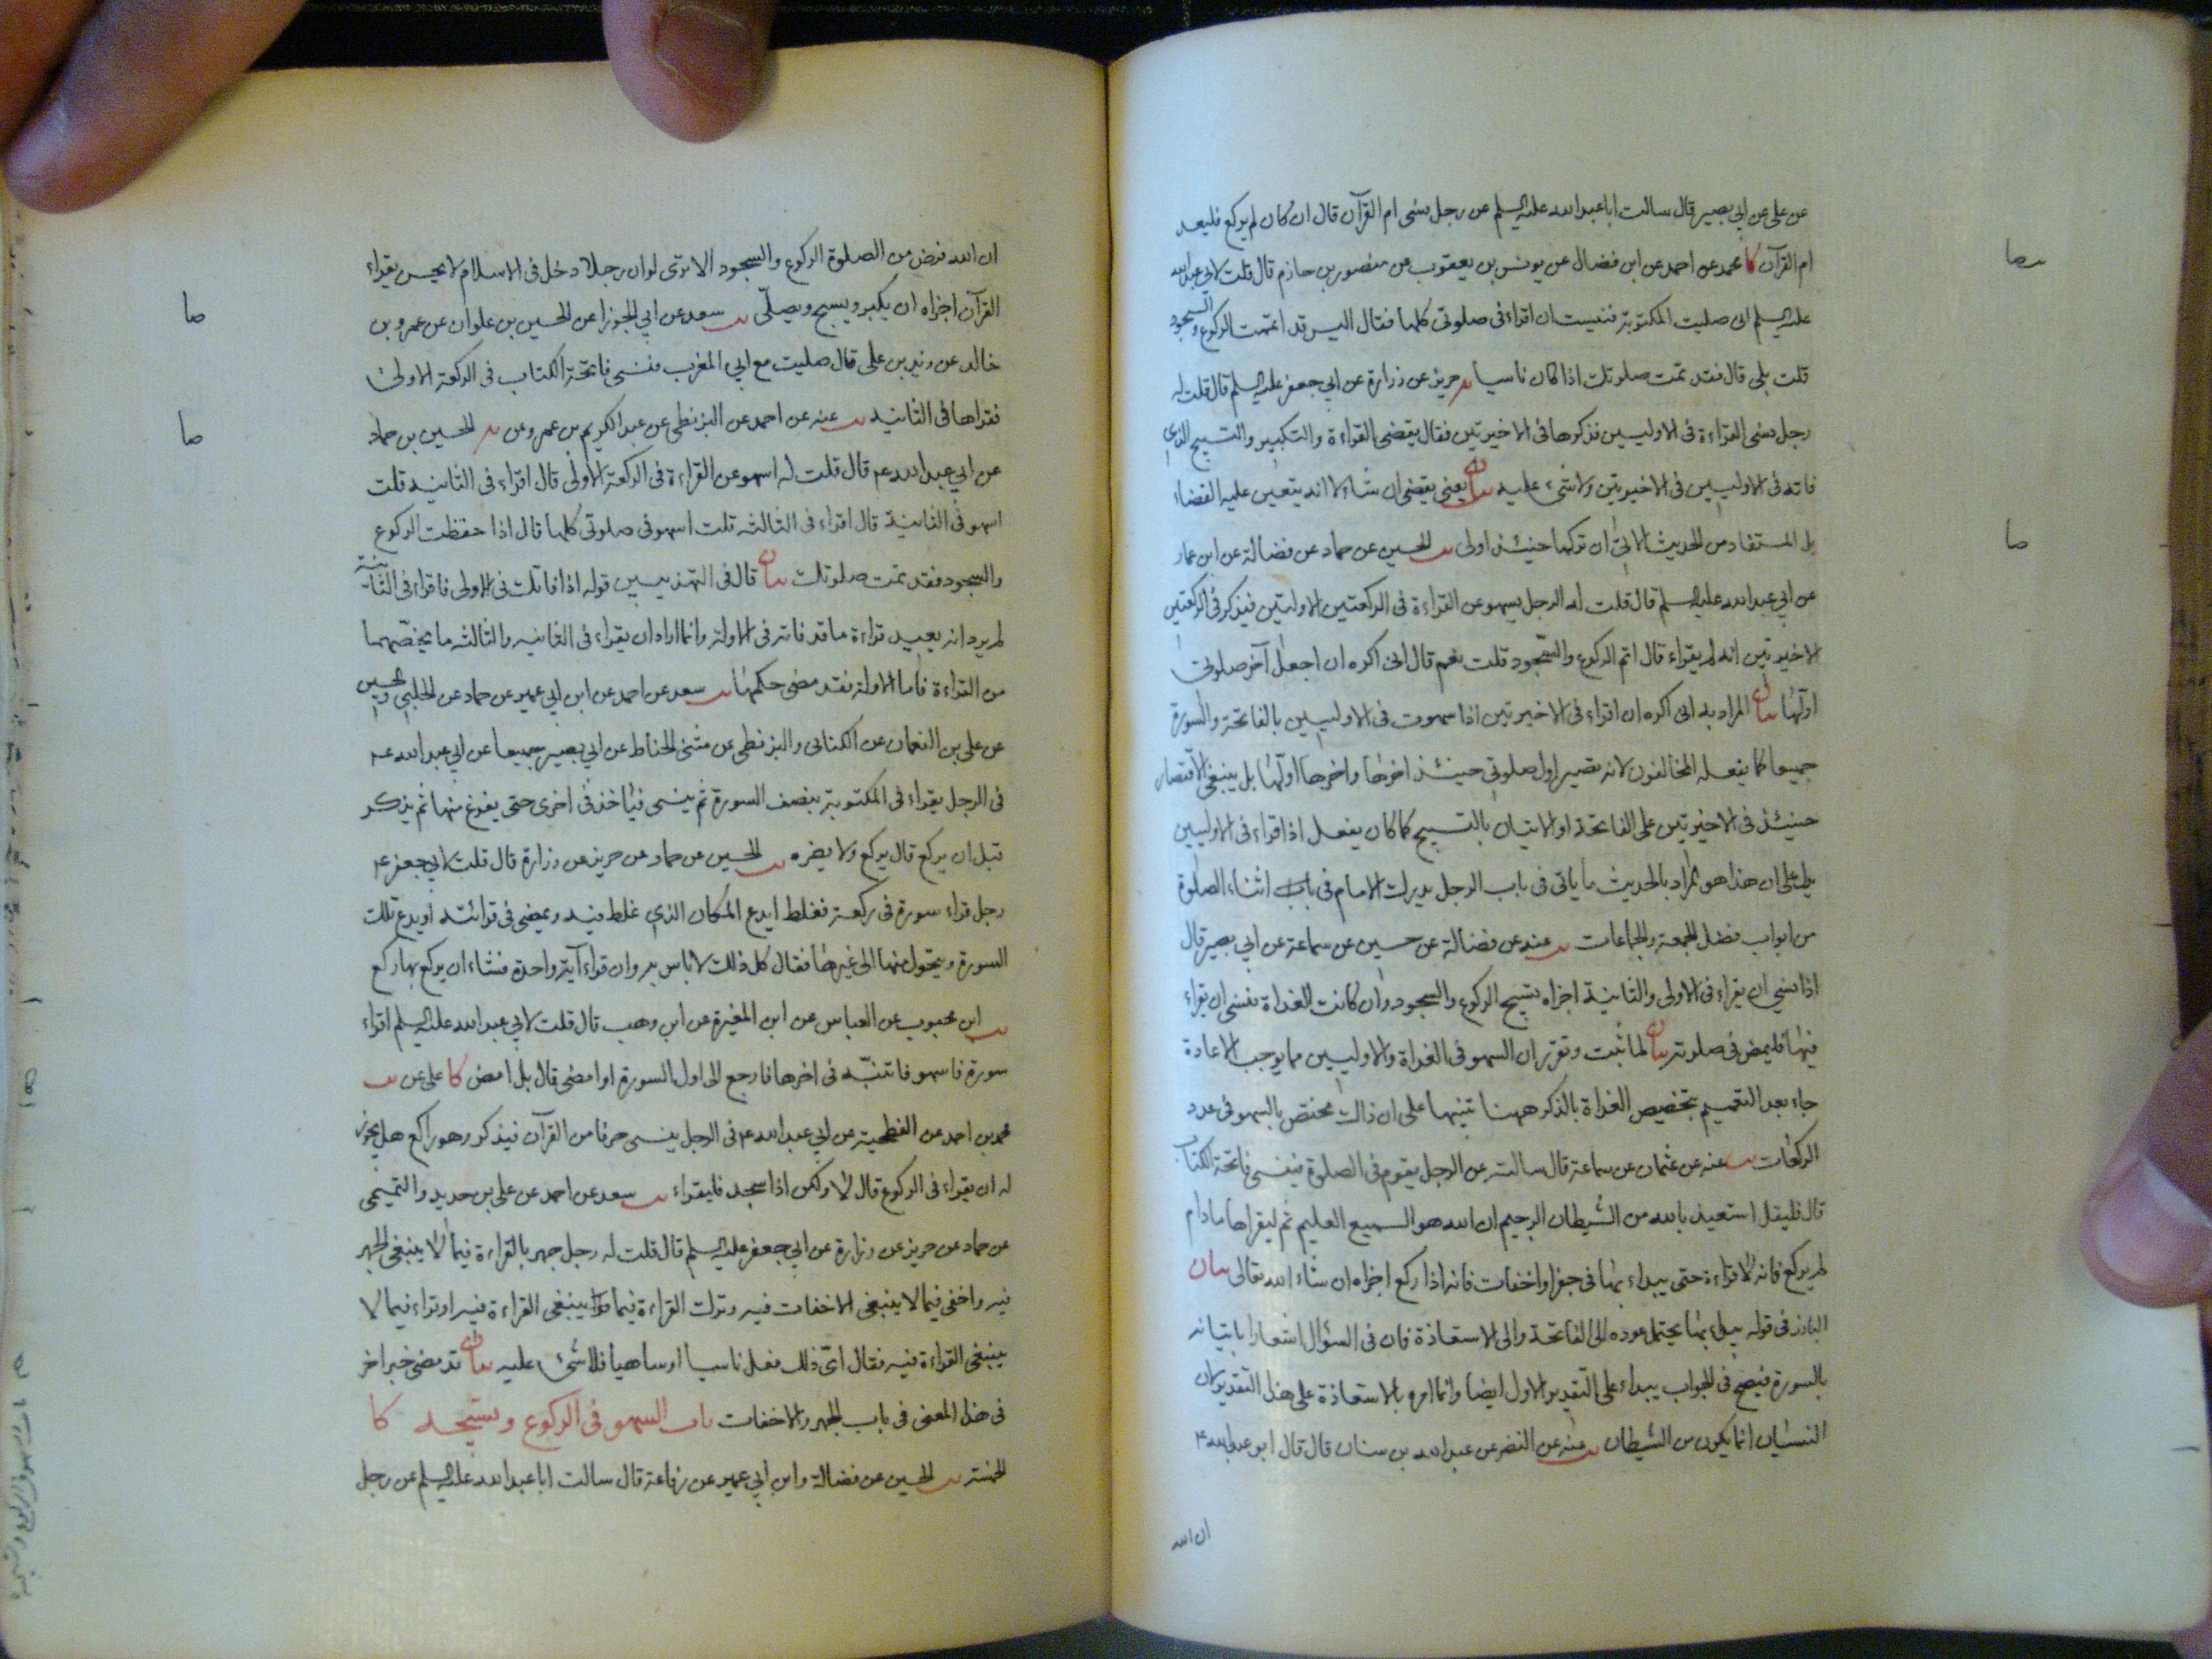 عن علي عن ابي بصير قال سالت ابا عبد الله عليه السلم عن رجل نسي ام القرآن قال ان كان لم يركع فليعد
ام القرآن كا محمد عن احمد عن ابن فضال عن يونس بن يعقوب عن منصور بن حازم قال قلت لابي عبد الله
عليه السلم اني صليت المكتوبة فنسيت ان اقراء في صلوتي كلها فقال اليس قد اتممت الركوع والسجود
قلت بلي قال فقد تمت صلوتك اذا كان ناسيا يه حريز عن زرارة عن ابي جعفر عليه السلم قال قلت له
رجل نسي القراءة في الاوليين فذكرها في الاخيرتين فقال يقضي القراءة والتكبير والتسبيح الذي
فاته في الاوليين في الاخيرتين ولا شيء عليه بيان يعني يقضي ان شاء لا انه يتعين عليه القضاء
بل المستفاد من الحديث الاتي ان تركها حينئذ اولي يب الحسين عن حماد عن فضالة عن ابن عمار
عن ابي عبد الله عليه السلم قال قلت له الرجل يسهو عن القراءة في الركعتين الاوليتين فيذكر في الركعتين
الاخيرتين انه لم يقراء قال اتم الركوع والسجود قلت نعم قال اني اكره ان اجعل آخر صلوتي
اولها بيان المراد به اني اكره ان اقراء في الاخيرتين اذا سهوت في الاوليين بالفاتحة والسورة
جميعا كما يفعله المخالفون لانه يصير اول صلوتي حينئذ اخرها واخرها اولها بل ينبغي الاقتصار
حينئذ في الاخيرتين على الفاتحة او الاتيان بالتسبيح كما كان يفعل اذا قراء في الاوليين
يدل على ان هذا هو المراد بالحديث ما ياتي في باب الرجل يدرك الامام في باب اثناء الصلوة
من ابواب فضل الجمعة والجماعات يب عنه عن فضالة عن حسين عن سماعة عن ابي بصير قال
اذا نسي ان يقراء في الاولى والثانية اجزاه تسبيح الركوع والسجود وان كانت الغداة فنسي ان يقراء
فيها فليمض في صلوته بيان لما ثبت وتقرر ان السهو في الغداة والاوليين مما يوجب الاعادة
جاء بعد التعميم بتخصيص الغداة بالذكر ههنا تنبيها على ان ذاك مختص بالسهو في عدد
الركعات يب عنه عن عثمان عن سماعة قال سالته عن الرجل يقوم في الصلوة فينسى فاتحة الكتاب
قال فليقل استعيذ بالله من الشيطان الرجيم ان الله هو السميع العليم ثم ليقراها ما دام
لم يركع فانه لا قراءة حتى يبداء بها في جهر او اخفات فانه اذا ركع اجزاه ان شاء الله تعالى بيان
البارز في قوله يبداء بها يحتمل عوده الى الفاتحة والى الاستعاذة فان في السؤال اشعارا باتيانه
بالسورة فيصح في الجواب يبداء على التقدير الاول ايضا وانما امره بالاستعاذة على هذا التقدير لان
النسيان انما يكون من الشيطان يب عنه عن النضر عن عبد الله بن سنان قال قال ابو عبد الله ع
ان الله
ان الله فرض من الصلوة الركوع والسجود الا ترى لو ان رجلا دخل في الاسلام لا يحسن يقراء
القرآن اجزاه ان يكبر ويسبح ويصلي يب سعد عن ابي الجوزا عن الحسين بن علوان عن عمرو بن
خالد عن زيد بن علي قال صليت مع ابي المغرب فنسي فاتحة الكتاب في الركعة الاولى
فقراها في الثانية يب عنه عن احمد عن البزنطي عن عبد الكريم بن عمرو عن يه الحسين بن حماد
عن ابي عبد الله ع قال قلت له اسهو عن القراءة في الركعة الاولى قال اقراء في الثانية قلت
اسهو في الثانية قال اقراء في الثالثة قلت اسهو في صلوتي كلها قال اذا حفظت الركوع
والسجود فقد تمت صلوتك بيان قال في التهذيبين قوله اذا فاتك في الاولى فاقراء في الثانية
لم يرد انه يعيد قراءة ما قد فاته في الاولة وانما اراد ان يقراء في الثانية والثالثة ما يخصهما
من القراءة فاما الاولة فقد مضى حكمها يب سعد عن احمد عن ابن ابي عمير عن حماد عن الحلبي والحسين
عن علي بن النعمان عن الكناني والبزنطي عن مثنى الحناط عن ابي بصير جميعا عن ابي عبد الله ع
في الرجل يقراء في المكتوبة بنصف السورة ثم ينسى فياخذ في اخرى حتى يفرغ منها ثم يذكر
قبل ان يركع قال يركع ولا يضره يب الحسين عن حماد عن حريز عن زرارة قال قلت لابي جعفر ع
رجل قراء سورة في ركعة فغلط ايدع المكان الذي غلط فيه ويمضي في قرائته او يدع تلك
السورة ويتحول منها الى غيرها فقال كل ذلك لا باس به وان قراء آية واحدة فشاء ان يركع بها ركع
يب ابن محبوب عن العباس عن ابن المغيرة عن ابن وهب قال قلت لابي عبد الله عليه السلم اقراء
سورة فاسهو فانتبه في اخرها فارجع الى اول السورة او امضي قال بل امض كا علي عن يب
محمد بن احمد عن الفطحية عن ابي عبد الله ع في الرجل ينسى حرفا من القرآن فيذكر وهو راكع هل يجوز
له ان يقراء في الركوع قال لا ولكن اذا سجد فليقراء يب سعد عن احمد عن علي بن حديد والتميمي
عن حماد عن حريز عن زرارة عن ابي جعفر عليه السلم قال قلت له رجل جهر بالقراءة فيما لا ينبغي الجهر
فيه واخفى فيما لا ينبغي الاخفات فيه وترك القراءة فيما ينبغي القراءة فيه او قراء فيما لا
ينبغي القراءة فيه فقال اي ذلك فعل ناسيا او ساهيا فلا شئ عليه بيان قد مضى خبر اخر
في هذا المعنى في باب الجهر والاخفات باب السهو في الركوع وتسبيحه كا
الخمسة يب الحسين عن فضالة وابن ابي عمير عن رفاعة قال سالت ابا عبد الله عليه السلم عن رجل
صا
صا
صا